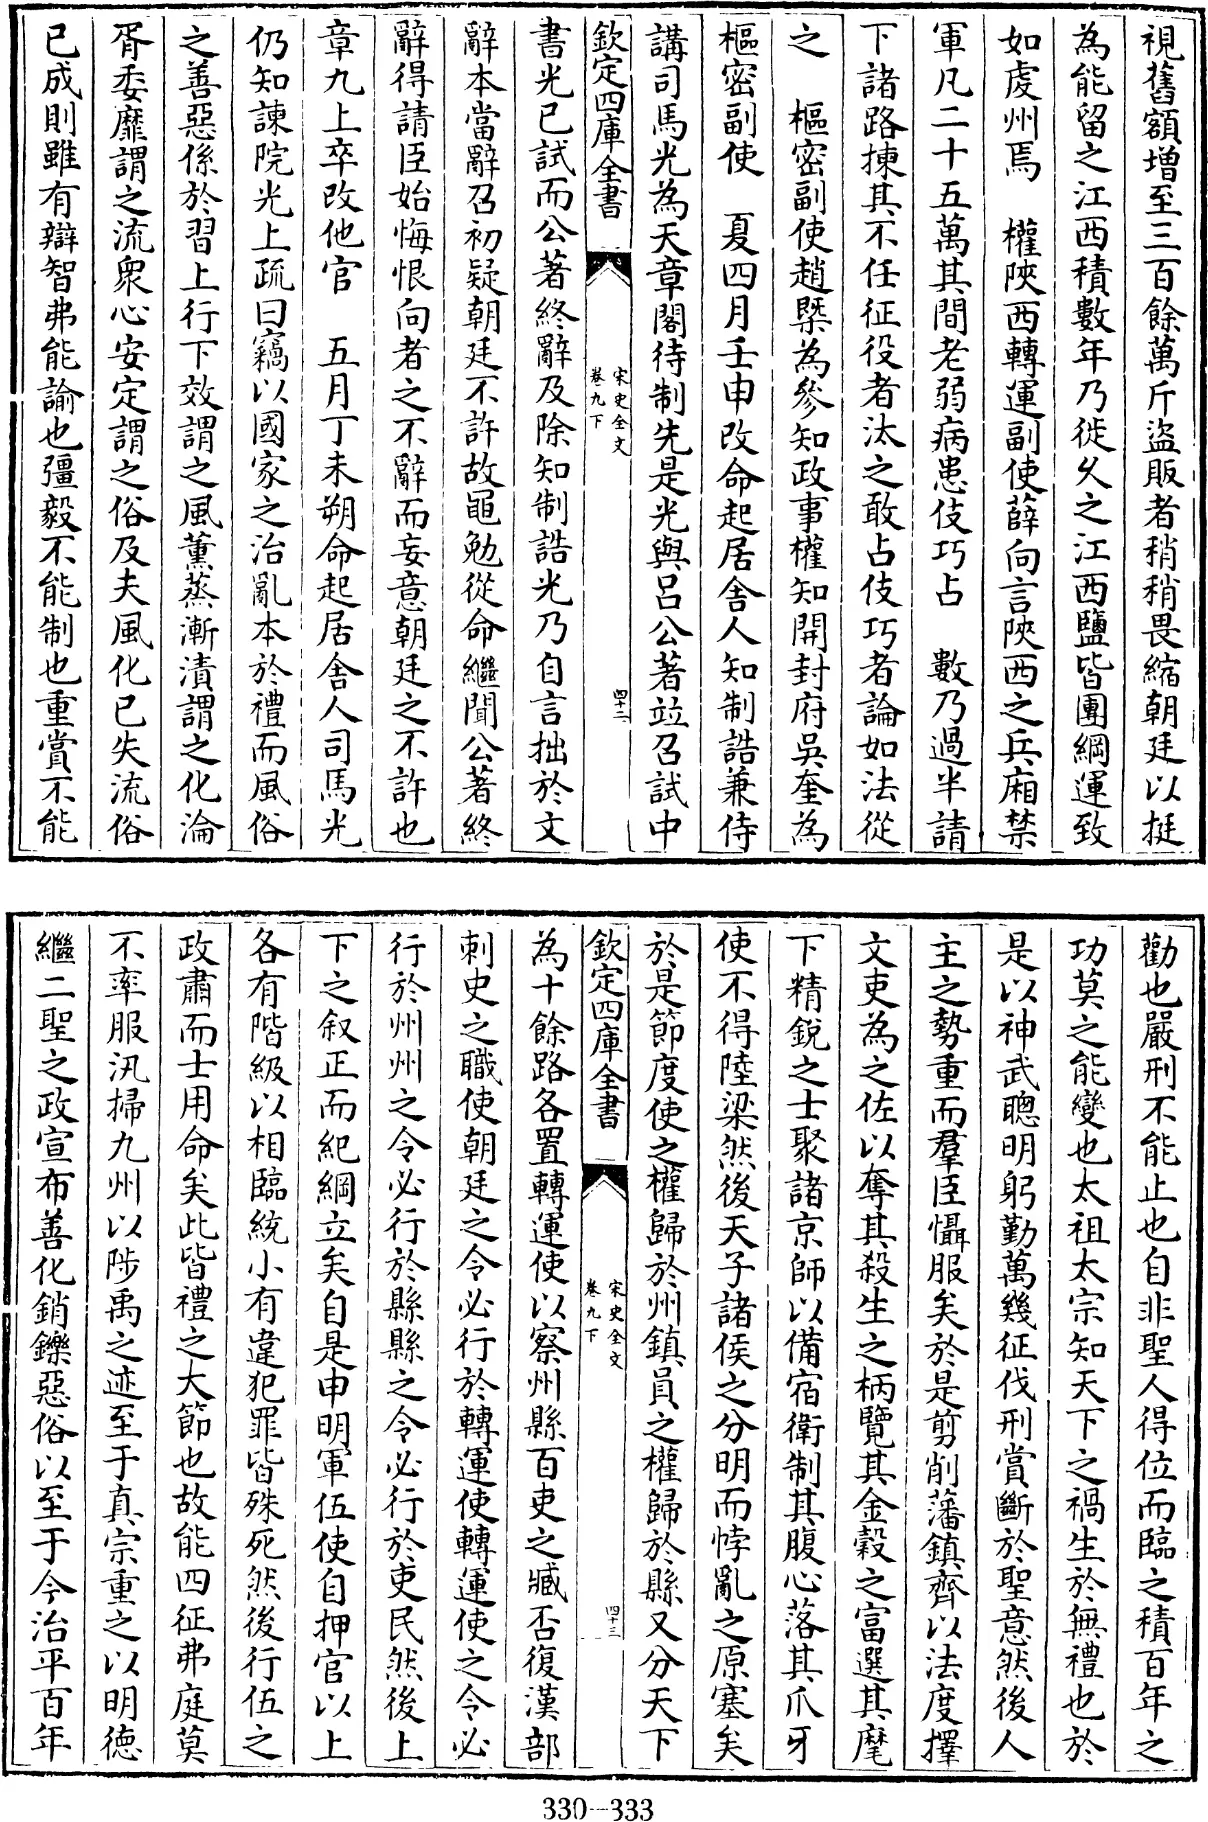 視舊額增至三百餘萬斤盜販者稍稍畏縮朝廷以挺
為能留之江西積數年乃徙久之江西鹽皆團綱運致
如虔州焉　權陜西轉運副使薛向言陜西之兵廂禁
軍凡二十五萬其間老弱病患伎巧占　數乃過半請
下諸路揀其不任征役者汰之敢占伎巧者論如法從
之　樞密副使趙槩為參知政事權知開封府吳奎為
樞密副使　夏四月壬申改命起居舍人知制誥兼侍
講司馬光為天章閣待制先是光與呂公著竝召試中
欽定四庫全書
宋史全文
卷九下
四十二
書光已試而公著終辭及除知制誥光乃自言拙於文
辭本當辭召初疑朝廷不許故黽勉從命繼聞公著終
辭得請臣始悔恨向者之不辭而妄意朝廷之不許也
章九上卒改他官　五月丁未朔命起居舍人司馬光
仍知諫院光上疏曰竊以國家之治亂本於禮而風俗
之善惡係於習上行下效謂之風薰蒸漸漬謂之化淪
胥委靡謂之流衆心安定謂之俗及夫風化已失流俗
已成則雖有辯智弗能諭也彊毅不能制也重賞不能
勸也嚴刑不能止也自非聖人得位而臨之積百年之
功莫之能變也太祖太宗知天下之禍生於無禮也於
是以神武聰明躬勤萬幾征伐刑賞斷於聖意然後人
主之勢重而羣臣懾服矣於是剪削藩鎮齊以法度擇
文吏為之佐以奪其殺生之柄覽其金穀之富選其麾
下精銳之士聚諸京師以備宿衛制其腹心落其爪牙
使不得陸梁然後天子諸侯之分明而悖亂之原塞矣
於是節度使之權歸於州鎮員之權歸於縣又分天下
欽定四庫全書
宋史全文
卷九下
四十三
為十餘路各置轉運使以察州縣百吏之臧否復漢部
刺史之職使朝廷之令必行於轉運使轉運使之令必
行於州州之令必行於縣縣之令必行於吏民然後上
下之叙正而紀綱立矣自是申明軍伍使自押官以上
各有階級以相臨統小有違犯罪皆殊死然後行伍之
政肅而士用命矣此皆禮之大節也故能四征弗庭莫
不率服汛掃九州以陟禹之迹至于真宗重之以明德
繼二聖之政宣布善化銷鑠惡俗以至于今治平百年
330-333